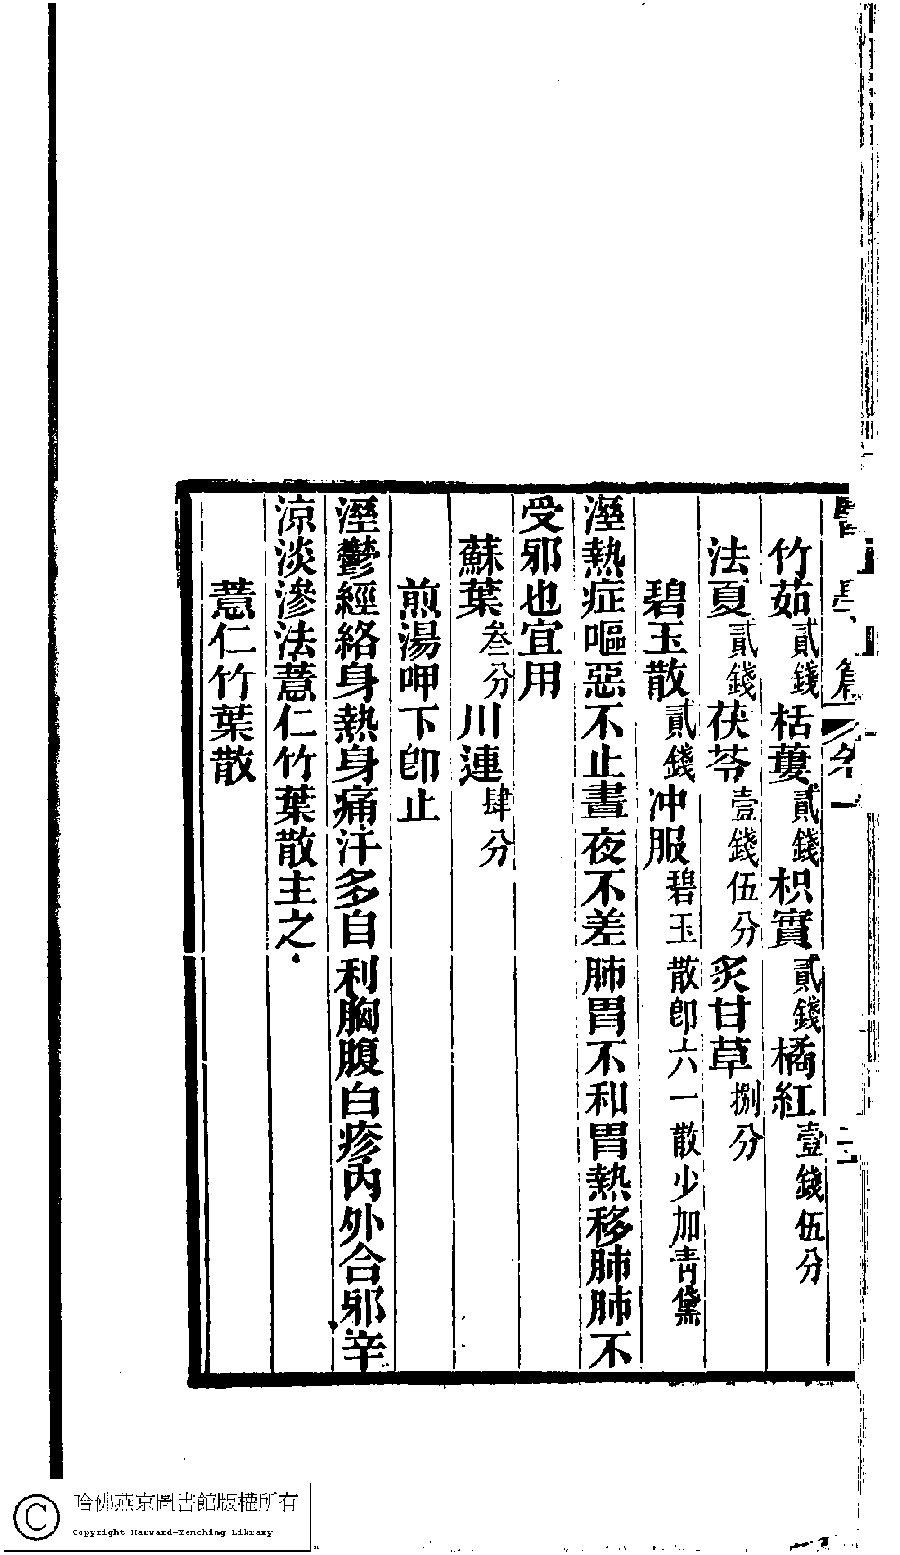 竹茹貳錢枯蔞貳錢枳實貳錢橘紅壹錢伍分
法夏貳錢茯苓壹錢伍分炙甘草捌分
碧玉散貳錢冲服碧玉散卽六一散少加青黛
溼熱症嘔惡不止晝夜不差肺胃不和胃熱移肺肺不
受邪也宜用
蘇葉叁分川連肆分
煎湯呷下卽止
溼鬱經絡身熱身痛汗多自利胸腹白疹內外合邪辛
涼淡滲法薏仁竹葉散主之
薏仁竹葉散
哈佛燕京圖書館版權所有
Copyright Harvard-Yenching Library